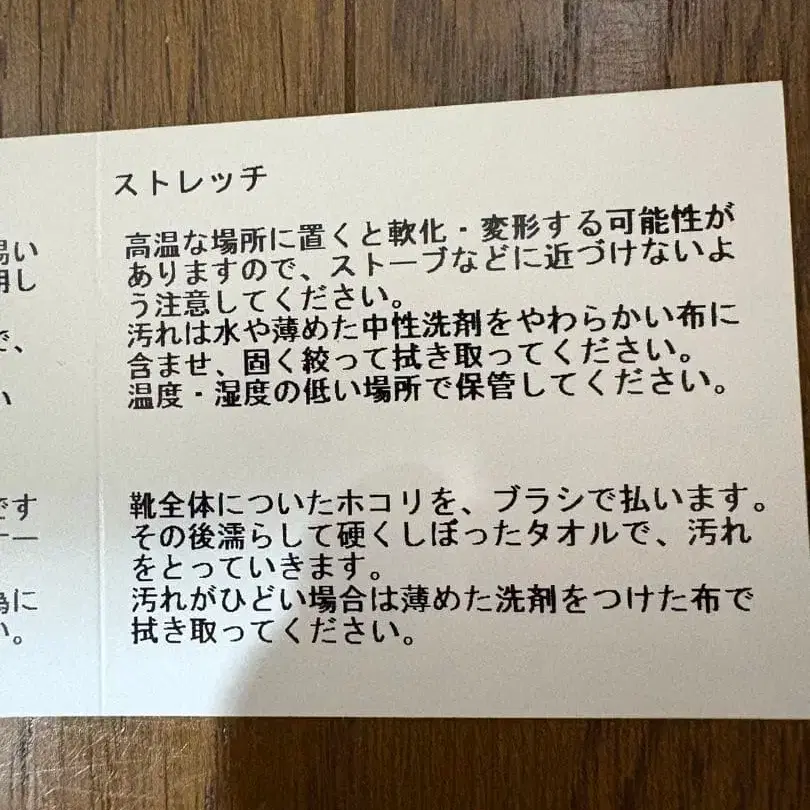 ストレッチ
高温な場所に置くと軟化・変形する可能性が
ありますので、ストーブなどに近づけないよ
う注意してください。
汚れは水や薄めた中性洗剤をやわらかい布に
含ませ、固く絞って拭き取ってください。
温度・湿度の低い場所で保管してください。
靴全体についたホコリを、ブラシで払います。
その後濡らして硬くしぼったタオルで、汚れ
をとっていきます。
汚れがひどい場合は薄めた洗剤をつけた布で
拭き取ってください。
い
用し
で、
い
です
ー
に
い。